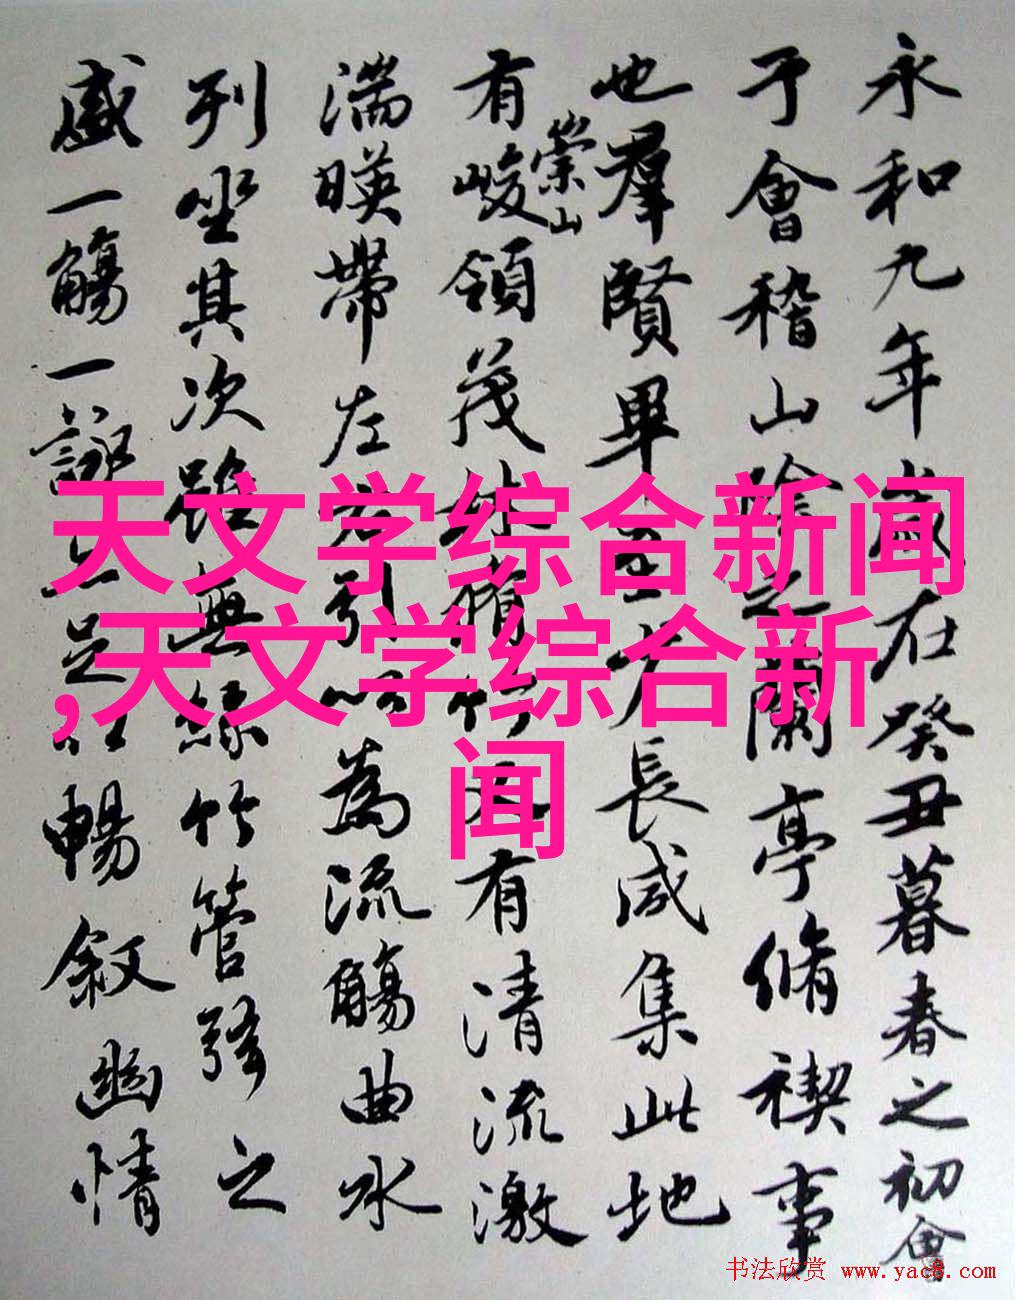 永和九年歲在癸丑暮春之初會
于會稽山陰之蘭亭脩禊事
也羣賢畢至少長咸集此地
有崇山峻領茂林脩竹又有清流激
湍暎帶左右引以為流觴曲水
列坐其次雖無絲竹管弦之
盛一觴一詠亦足以暢敘幽情
天文学综合新闻
,天文学综合新
闻
书法欣赏 www.yac8.com